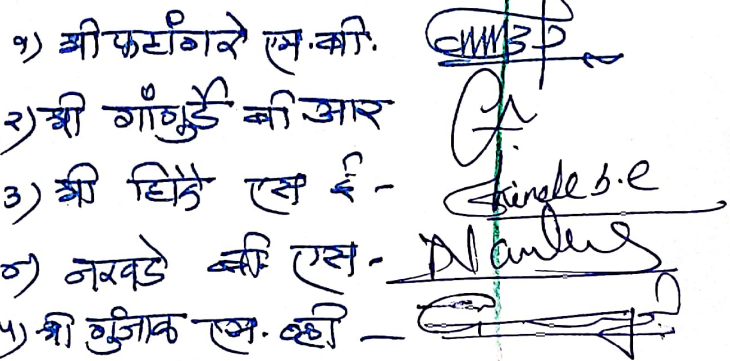 १) श्री फटांगरे एम.बी.
२) श्री गांगुर्डे बी आर
३) श्री शिंदे एस ई - Shinde S.E
४) नरवडे बी एस -
५) श्री गुंजाळ एम. व्ही -